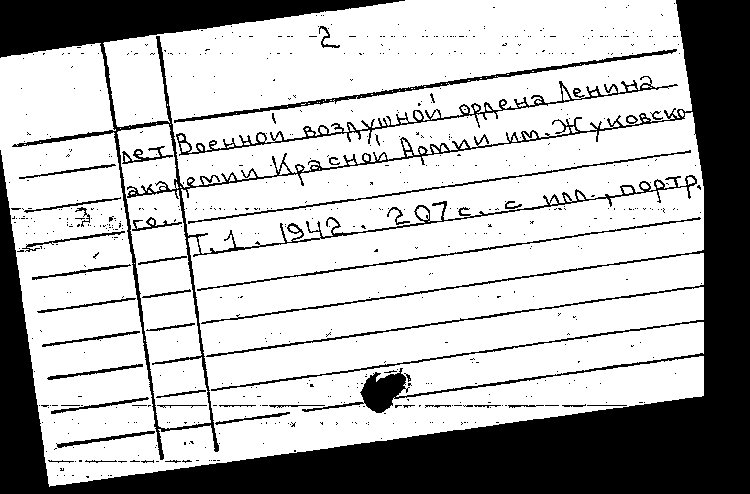 2
лет Военной воздушной ордена Ленина
академии Красной Армии им. Жуковско-
го.
Т. 1. 1942. 207 с. с илл., портр.